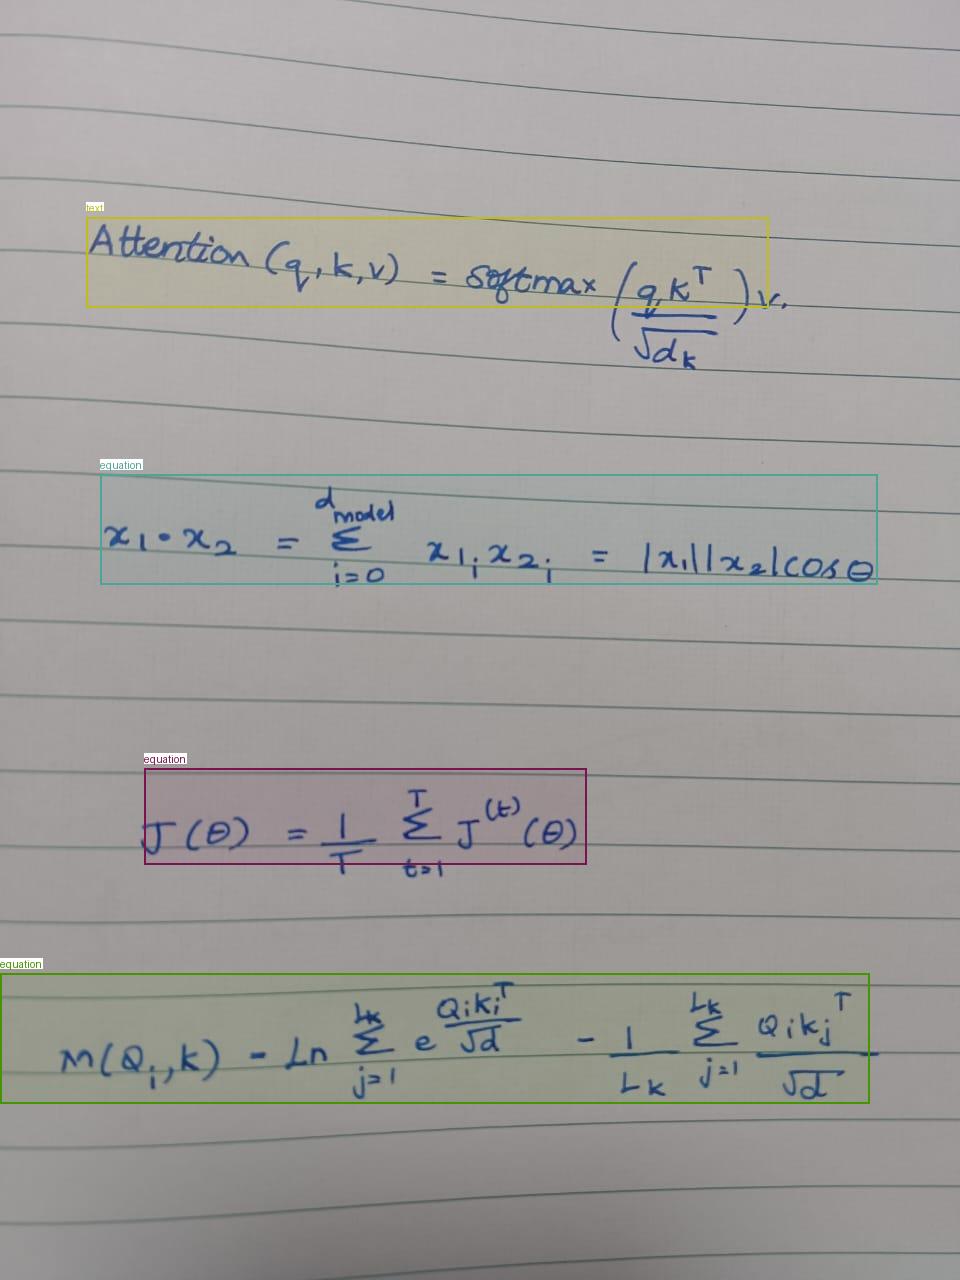 text
Attention (q, k, v) = softmax (q k^T / √d_k) v.
equation
x_1 · x_2 = Σ_{i=0}^{d_model} x_{1_i} x_{2_i} = |x_1||x_2| cos θ
equation
J(θ) = 1/T Σ_{t=1}^{T} J^{(t)}(θ)
equation
M(Q_i, k) - Ln Σ_{j=1}^{L_k} e^{Q_i k_i^T / √d} - 1/L_k Σ_{j=1}^{L_k} Q_i k_j^T / √d